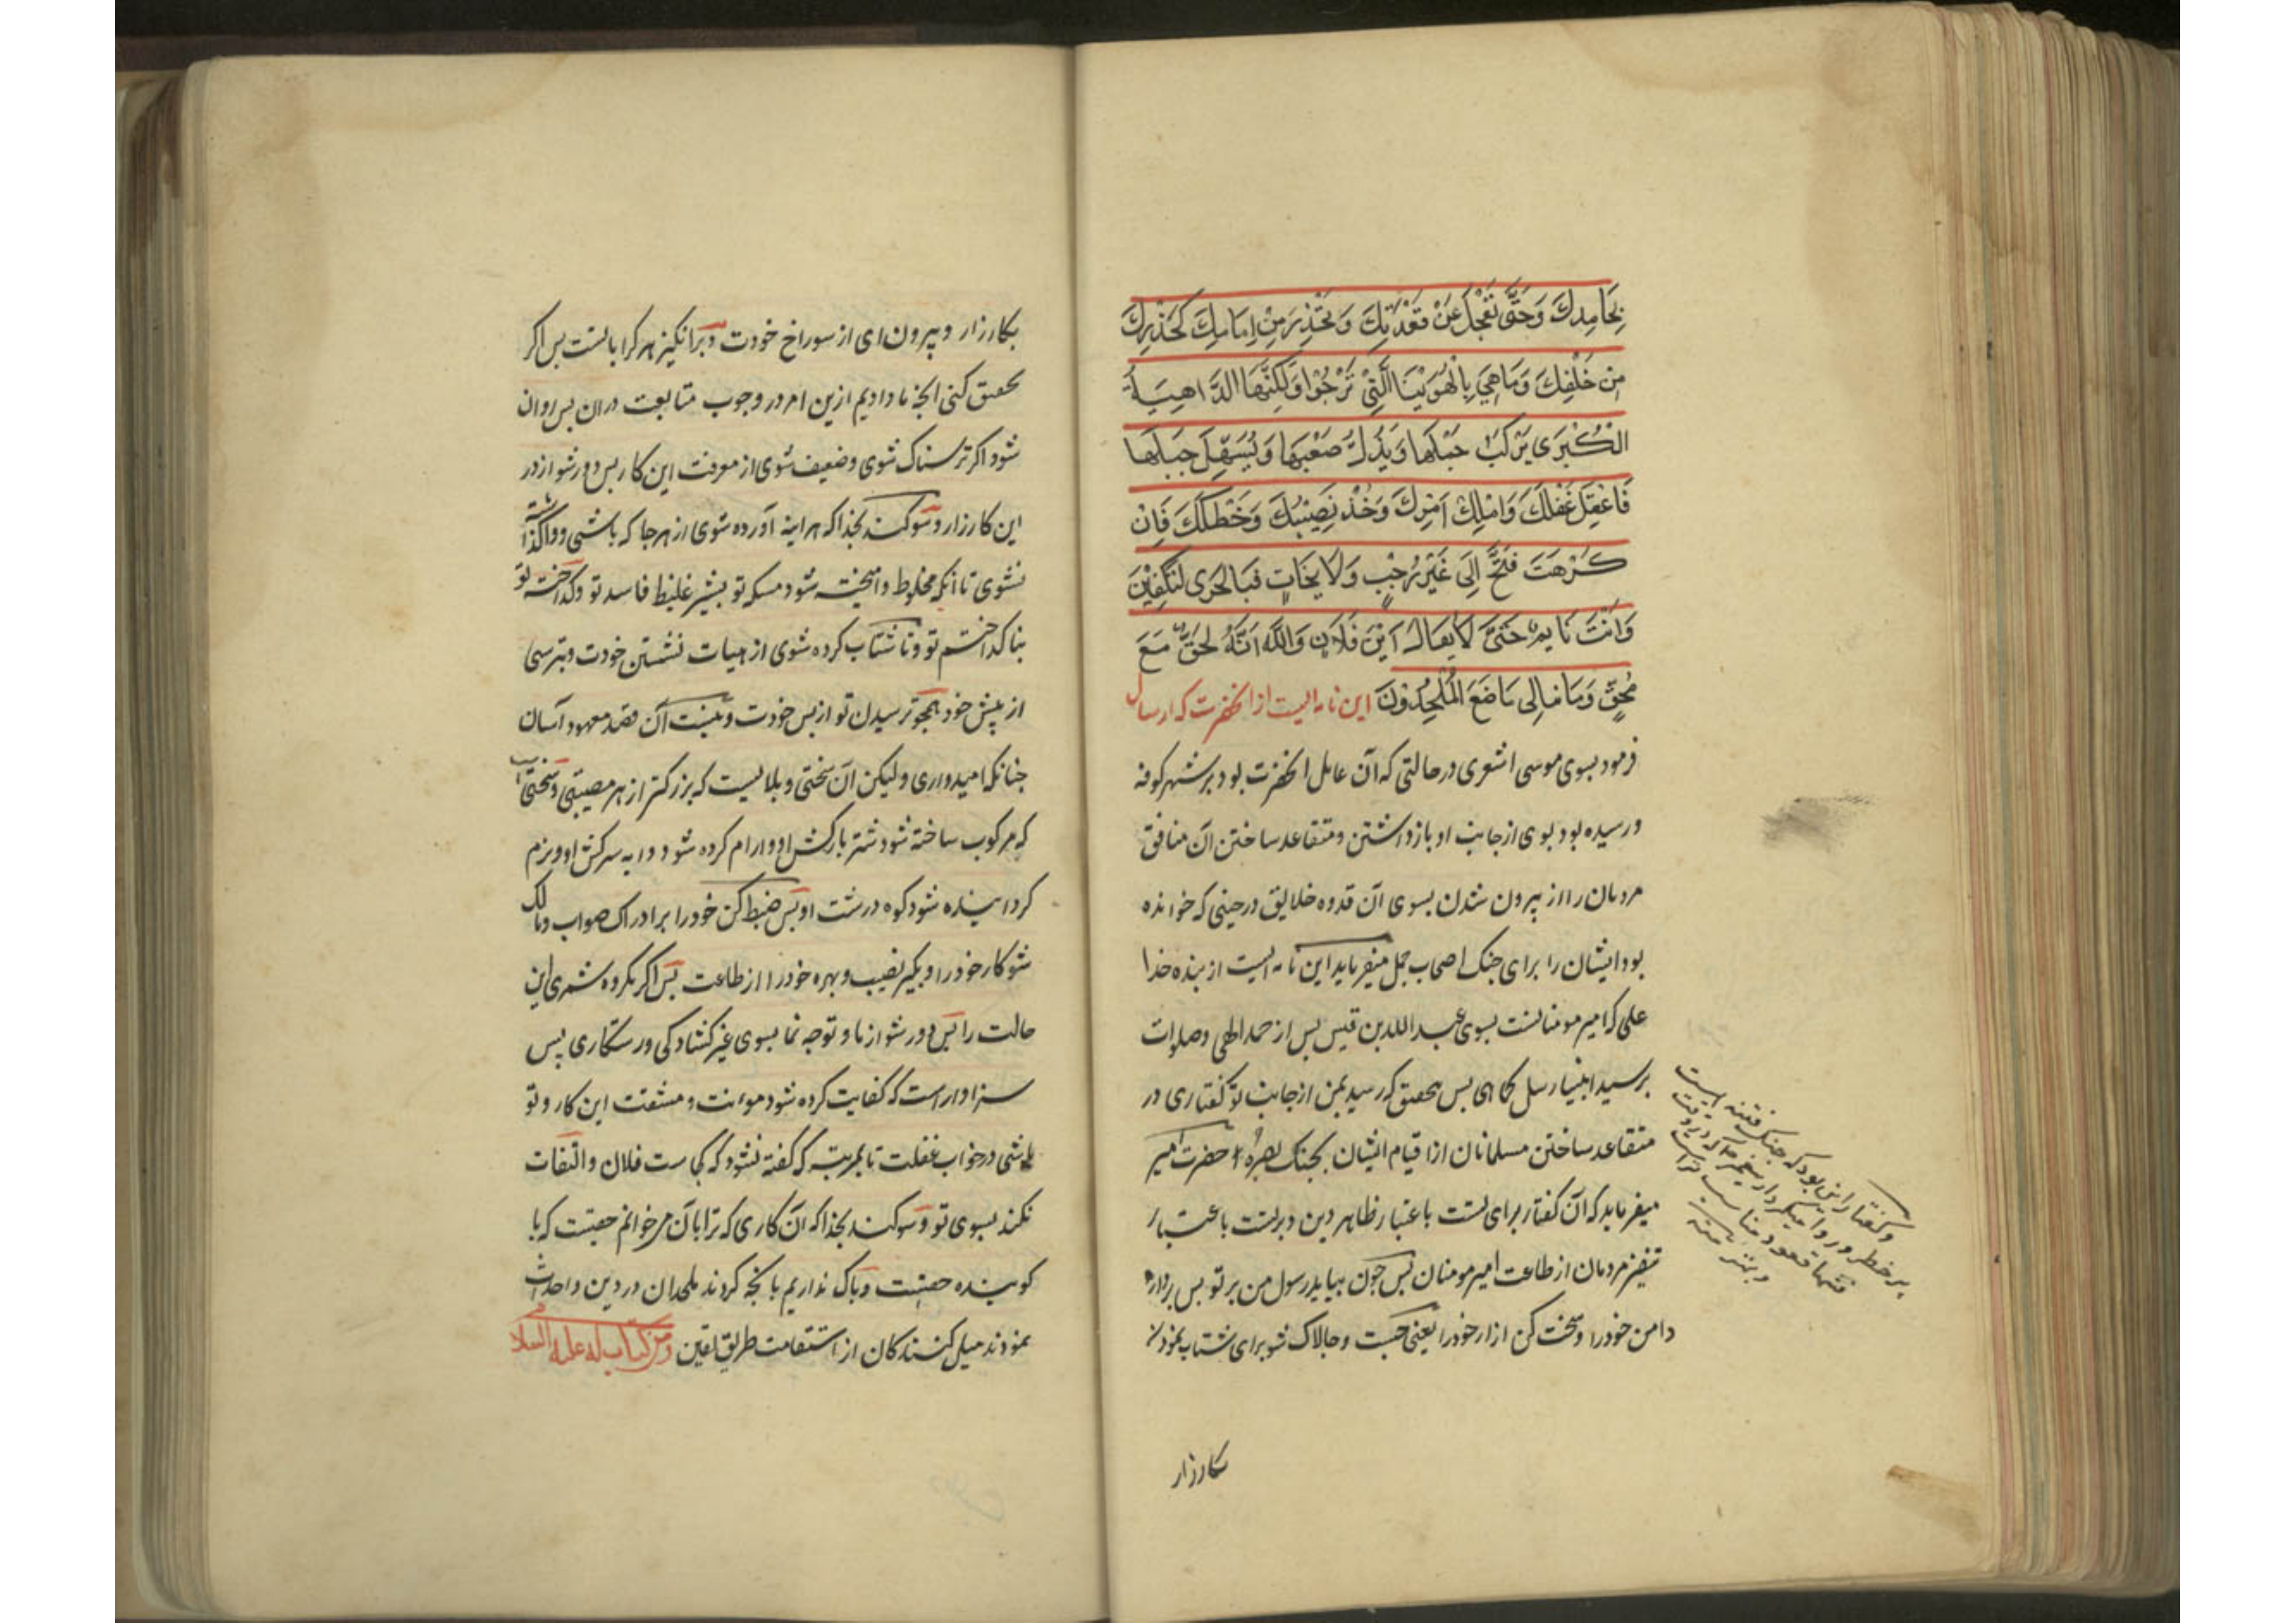 بِجَامِدِكَ وَحَتّٰى تُعْجَلَ عَنْ قَعْدَتِكَ وَتَحْذَرَ مِنْ اِمَامِكَ كَحَذَرِكَ
مِن خَلْفِكَ وَمَا هِيَ بِالْهُوَيْنَا الَّتِيْ تَرْجُوْا وَلٰكِنَّهَا الدَّاهِيَةُ
الْكُبْرٰى يُرْكَبُ جَمَلُهَا وَيُذَلُّ صَعْبُهَا وَيُسَهَّلُ جَبَلُهَا
فَاعْقِلْ عَقْلَكَ وَامْلِكْ اَمْرَكَ وَخُذْ نَصِيْبَكَ وَحَظَّكَ فَاِنْ
كَرِهْتَ فَتَنَحَّ اِلٰى غَيْرِ رَحْبٍ وَلَا نَجَاتٍ فَبِالْحَرٰى لَتُكْفَيَنَّ
وَاَنْتَ نَايِمٌ حَتّٰى لَا يُقَالَ اَيْنَ فُلَانٌ وَاللّٰهِ اِنَّهُ لَحَقٌّ مَعَ
مُحِقٍّ وَمَا نُبَالِى مَا صَنَعَ الْمُلْحِدُوْنَ این نامه ایست از انحضرت که ارسال
فرمود بسوی موسی اشعری در حالتی که آن عامل انحضرت بود بر شهر کوفه
و رسیده بود بوی از جانب او بازداشتن و متقاعد ساختن آن منافق
مردمان را از بیرون شدن بسوی آن قدوه خلایق در حینی که خوانده
بود ایشان را برای جنک اصحاب جمل میفرماید این نامه ایست از بنده خدا
علی که امیر مومنانست بسوی عبد الله بن قیس پس از حمد الهی و صلوات
بر سید انبیا رسل کماهی بس بتحقیق که رسید بمن از جانب تو گفتاری در
متقاعد ساختن مسلمانان از قیام ایشان بجنک بصره حضرت امیر
میفرماید که آن گفتار برای تست باعتبار ظاهر دین و برتست باعتبار
تنفیر مردمان از طاعت امیر مومنان پس جون بیاید رسول من بر تو بس بردار
دامن خود را و سخت کن ازار خود را یعنی جست و جالاک شو برای شتاب نمودن
کارزار
و گفتار این بود که جنک فتنه ایست
بکارزار و بیرون ای از سوراخ خودت و برانگیز هر کرا با تست بس اکر
تحقیق کنی آنجه ما دادیم ازین امر در وجوب متابعت دران بس روان
شود اکر ترسناک شوی و ضعیف شوی از معرفت این کار بس دور شو از در
این کارزار و سوکند بخدا که هراینه آورده شوی از هر جا که باشی و واگذاشته
نشوی تا آنکه مخلوط و آمیخته شود مسکه تو بشیر غلیظ فاسد تو و گداخته تو
بناگداختم تو و تا شتاب کرده شوی از هیات نشستن خودت و بترسی
از پیش خود همجو ترسیدن تو از بس خودت و نیست آن قصه معهود آسان
جنانکه امیدواری و لیکن آن سختی و بلا ایست که بزرکتر از هر مصیبتی و سختی است
که مرکوب ساخته شود شتر بارکش او و ارام کرده شود دابه سرکش او و نرم
گردانیده شود کوه درشت او بس ضبط کن خود را بر ادراک صواب و مالک
شو کار خود را و بگیر نصیب و بهره خود را از طاعت بس اکر مکروه شمری این
حالت را بس دور شو از ما و توجه نما بسوی غیر گشادگی و رستگاری پس
سزاوار است که کفایت کرده شود مونت و مشقت این کار و تو
باشی در خواب غفلت تا بمرتبه که گفته نشود که کجاست فلان و التفات
نکند بسوی تو و سوکند بخدا که آن کاری که ترا بآن میخوانم حقیست که با
گوینده حقیست و باک نداریم بآنجه کردند ملحدان در دین و احداث
نمودند میل کنندکان از استقامت طریق یقین ومن کتاب له علیه السلام